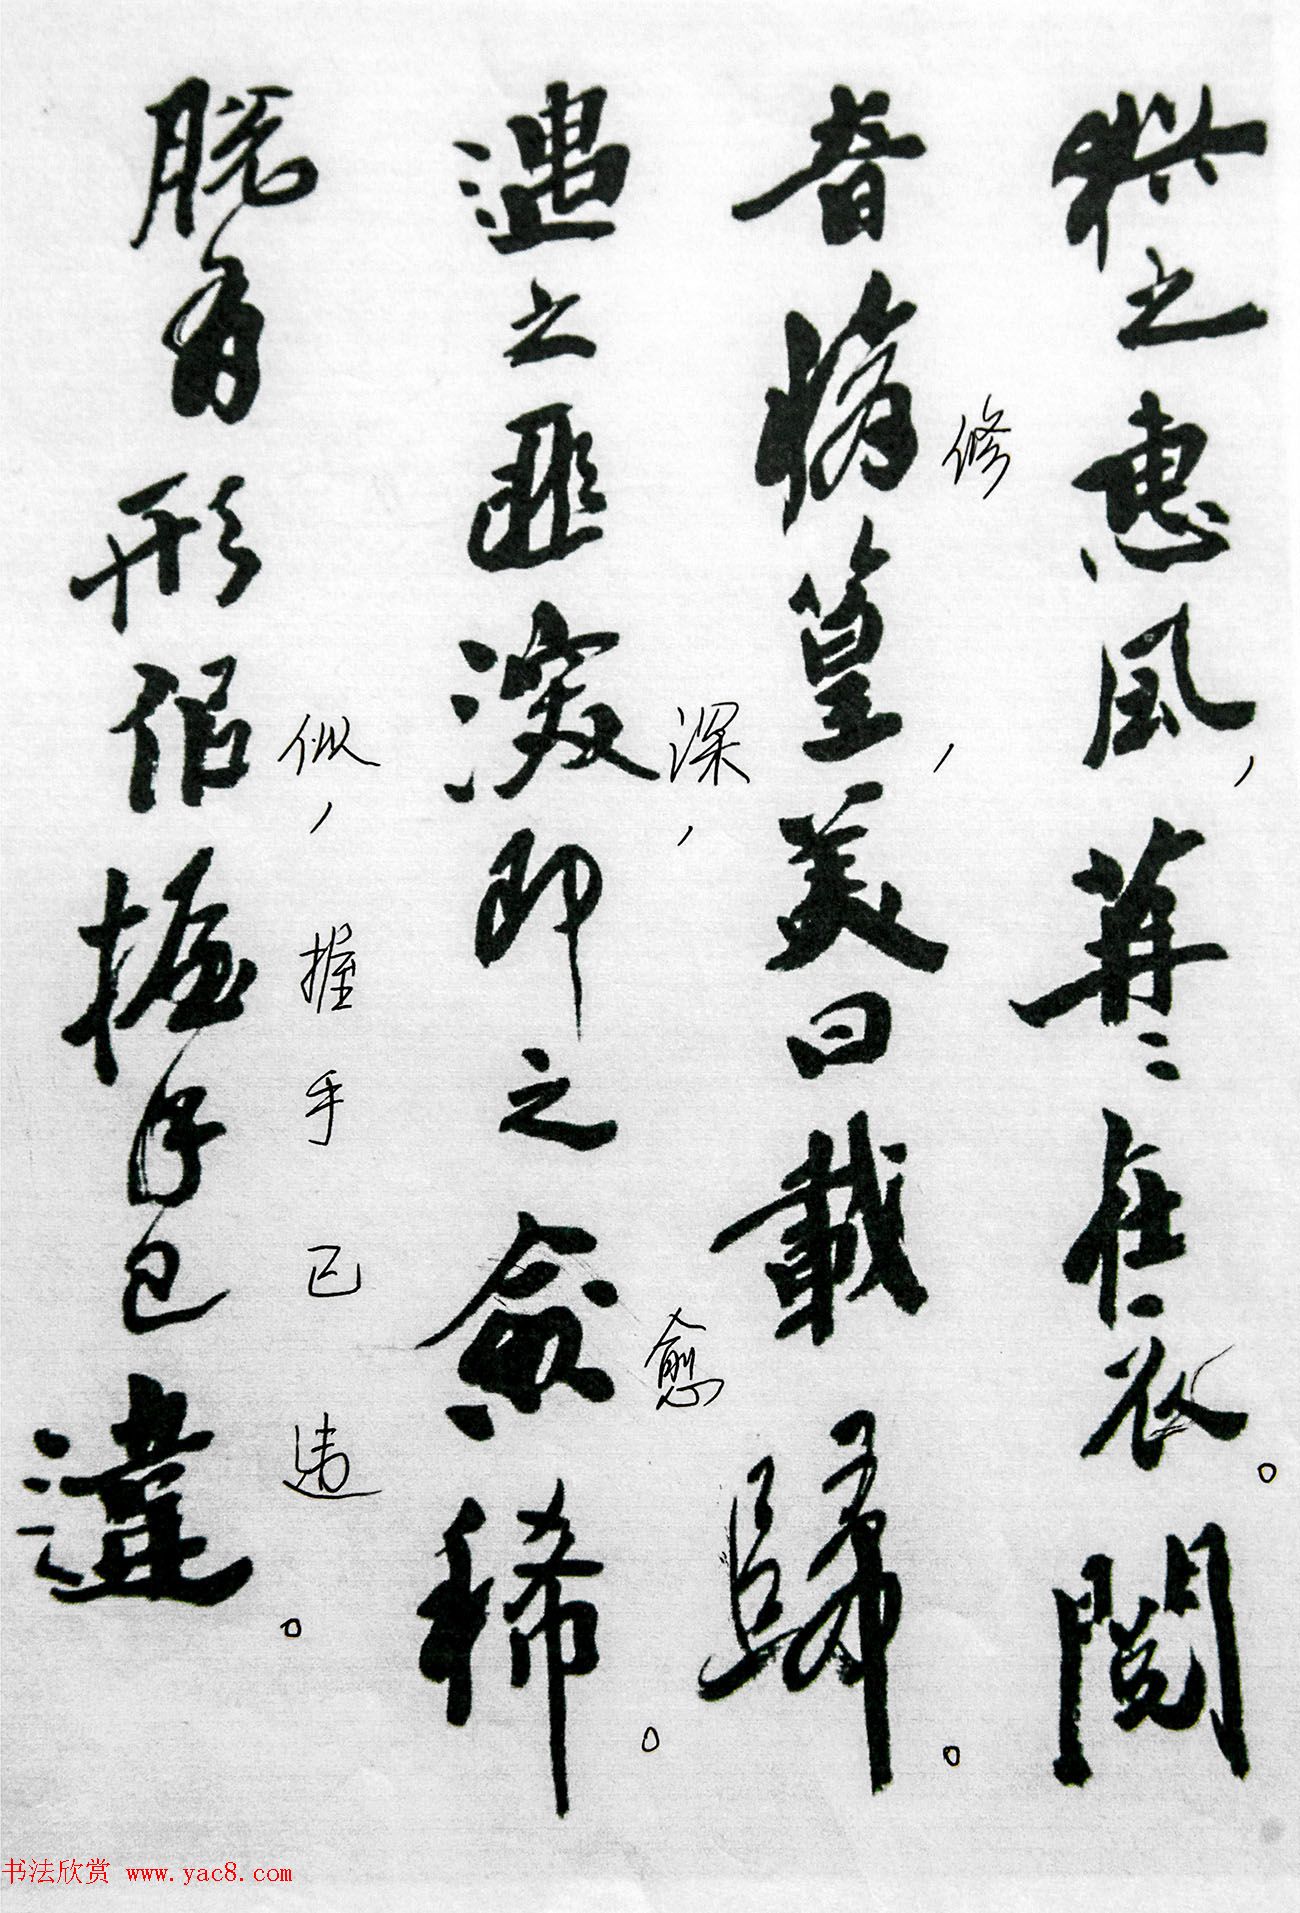 猶之惠風，苒〻在衣。閱
音脩篁，美曰載歸。
修
遇之匪深，即之愈稀。
深，
愈
脱有形似，握手已違。
似，握手已违
书法欣赏 www.yac8.com